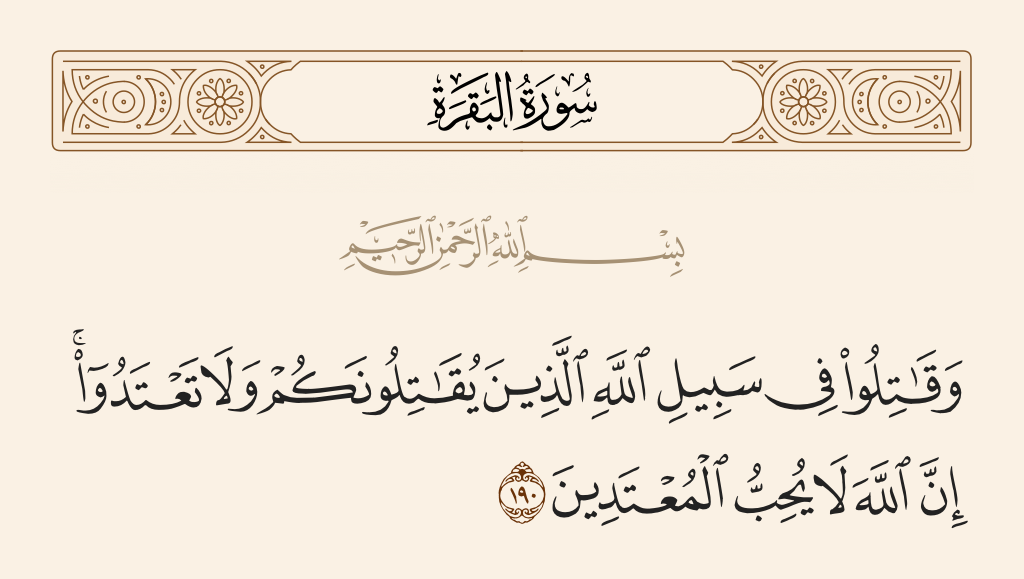 سُورَةُ البَقَرَةِ
بِسْمِ ٱللَّهِ ٱلرَّحْمَٰنِ ٱلرَّحِيمِ
وَقَـٰتِلُوا۟ فِى سَبِيلِ ٱللَّهِ ٱلَّذِينَ يُقَـٰتِلُونَكُمْ وَلَا تَعْتَدُوٓا۟ ۚ
إِنَّ ٱللَّهَ لَا يُحِبُّ ٱلْمُعْتَدِينَ ١٩٠